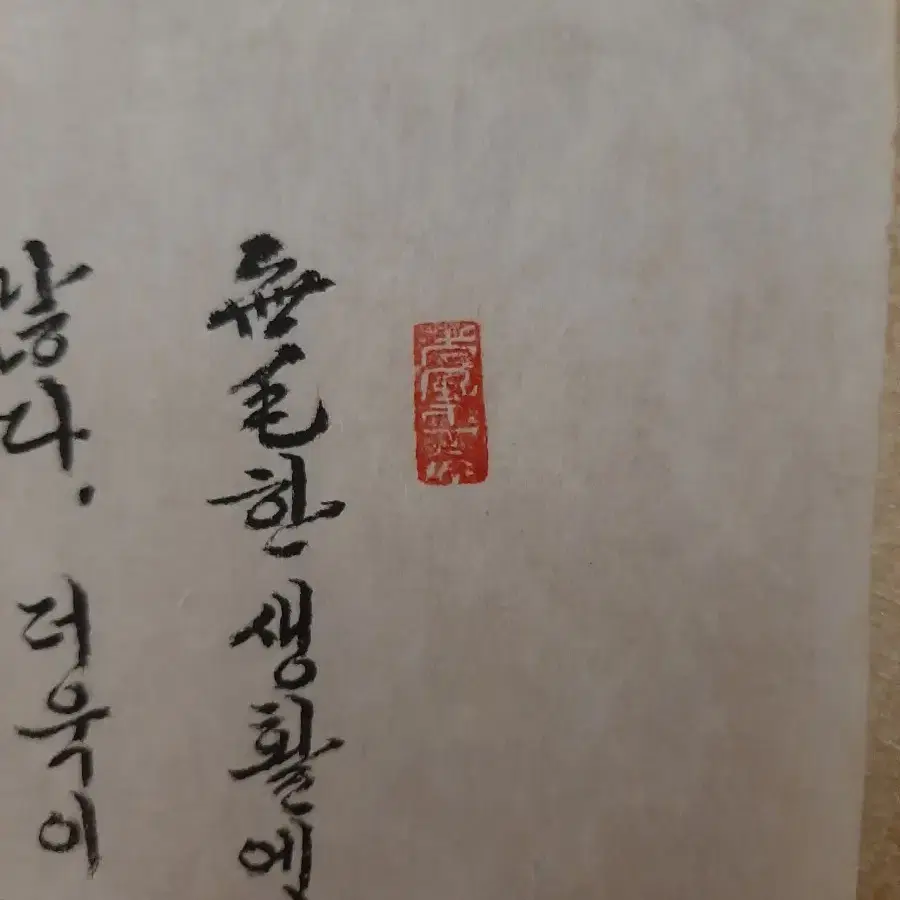 無毛한 생활에
많다. 더욱이